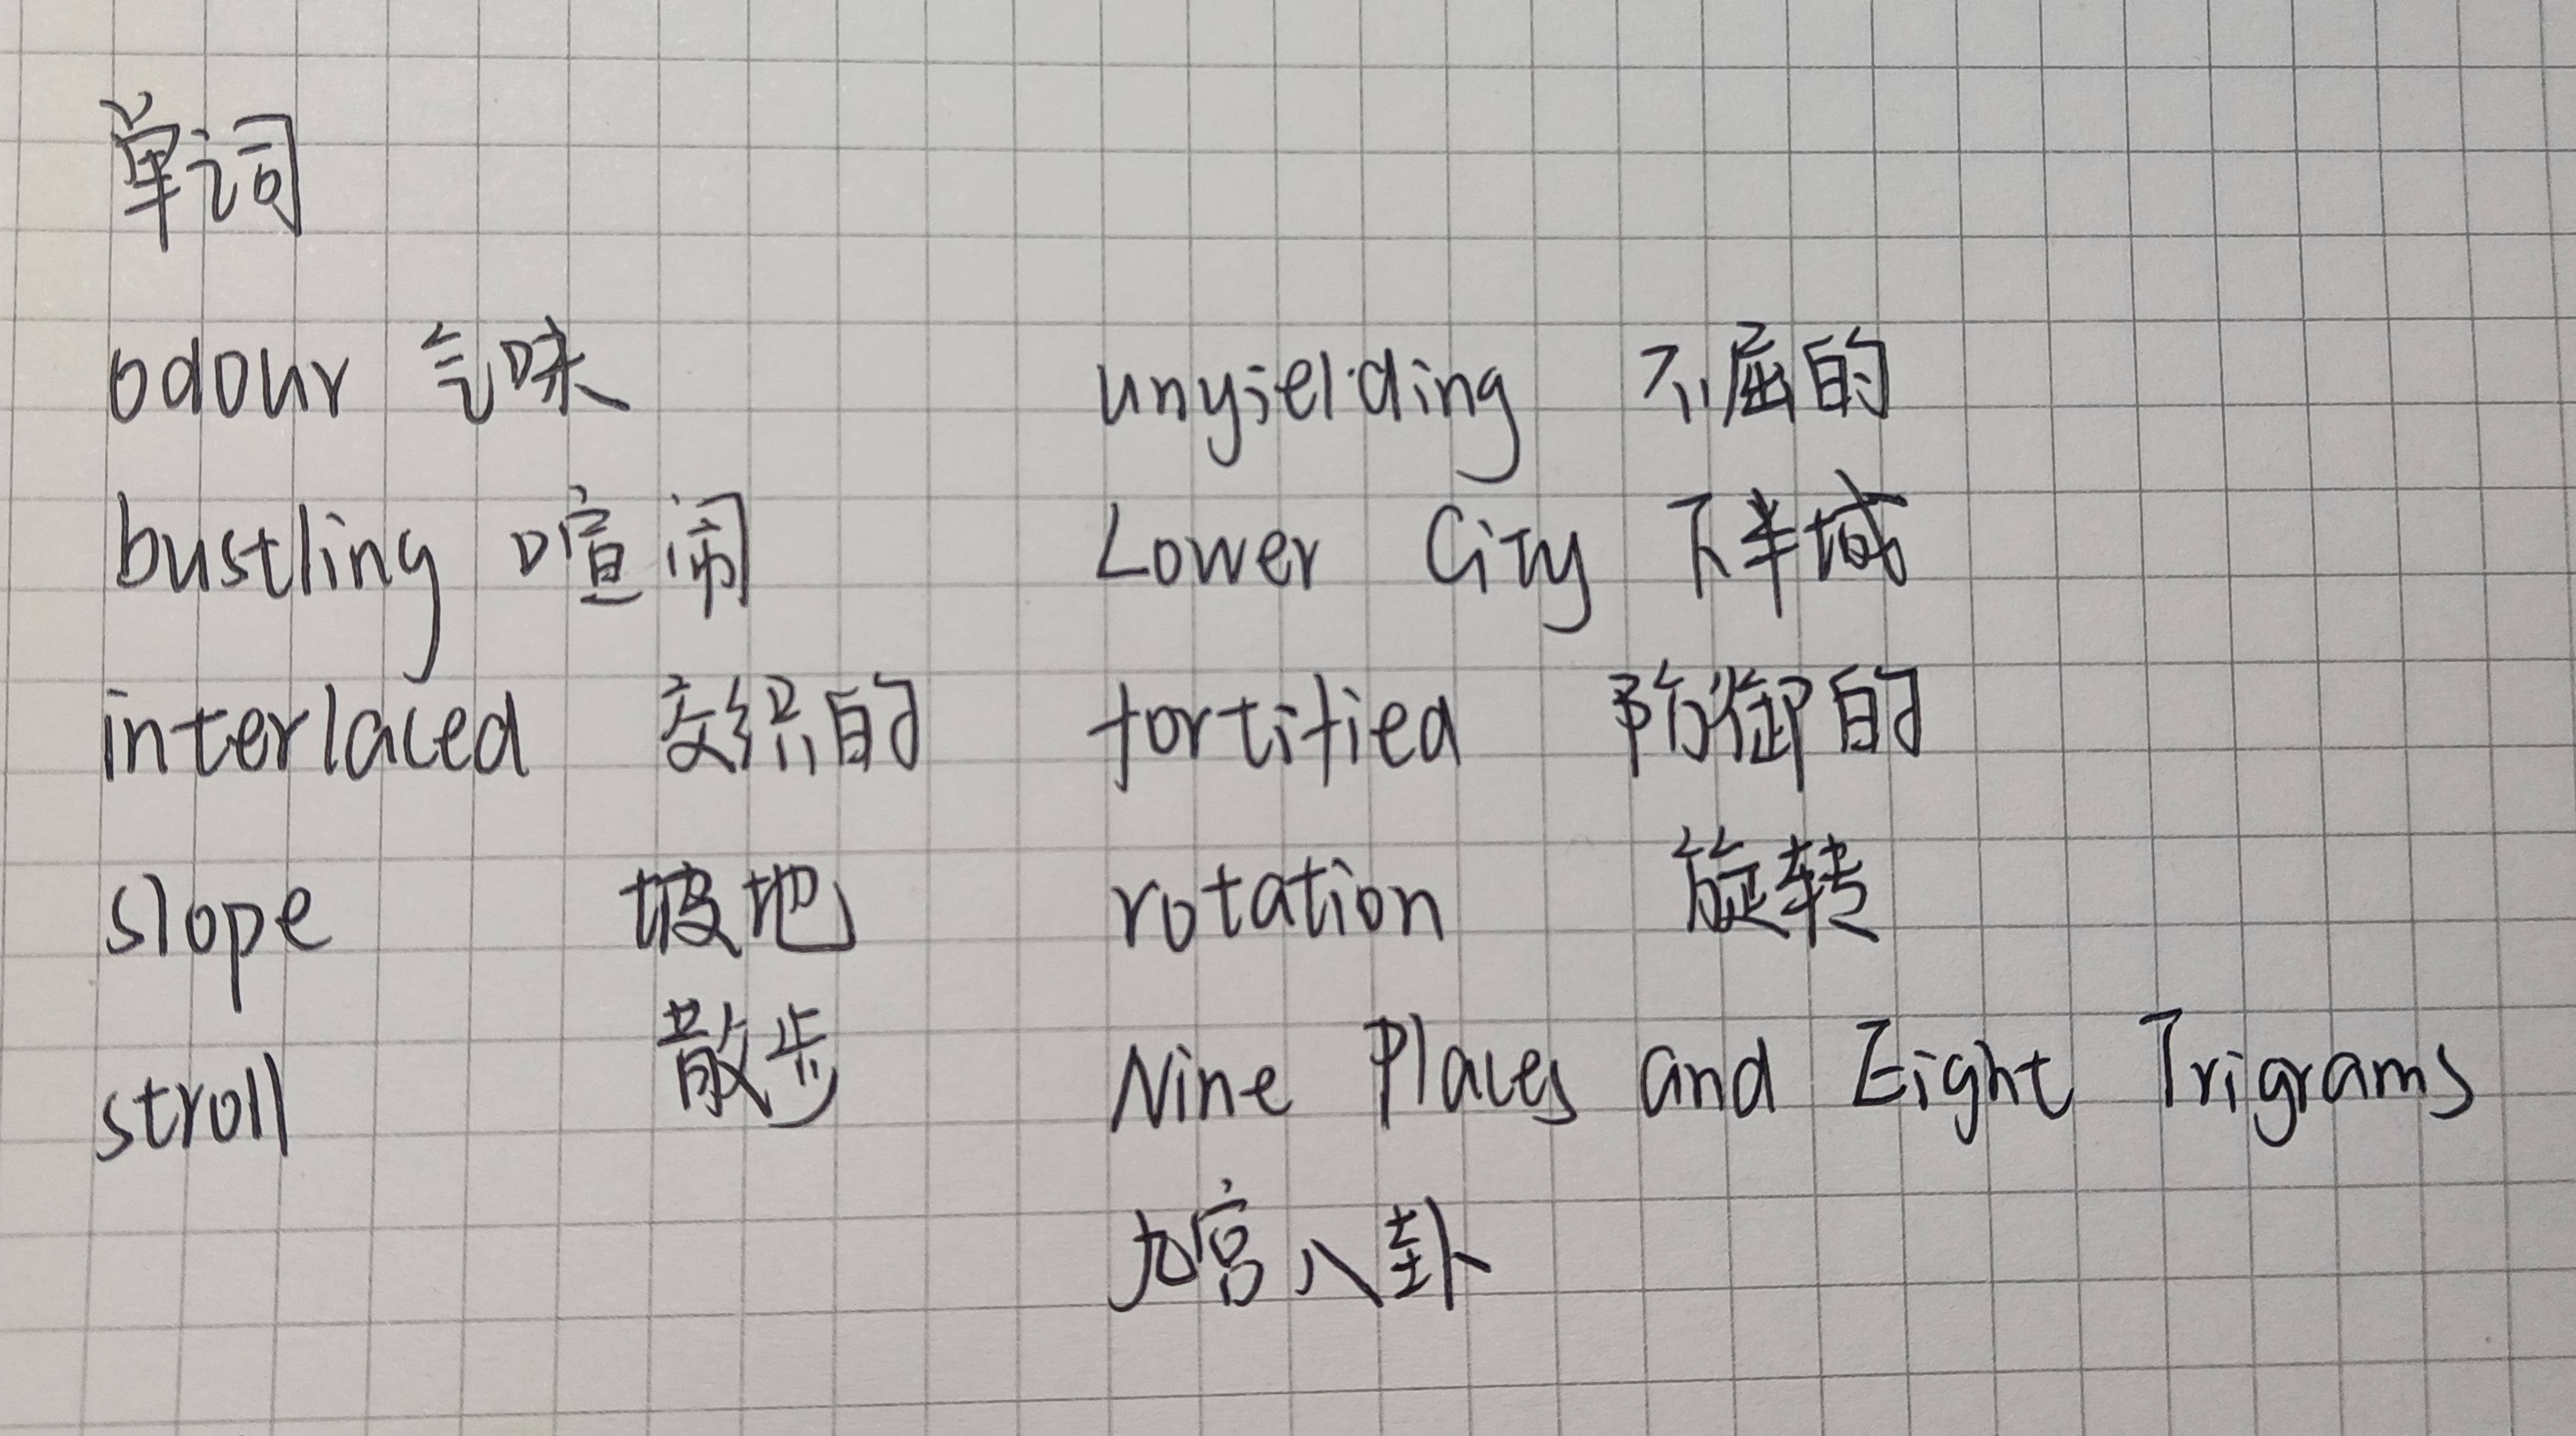 单词
odour 气味
bustling 喧闹
interlaced 交织的
slope 坡地
stroll 散步
unyielding 不屈的
Lower City 下半城
fortified 防御的
rotation 旋转
Nine Places and Eight Trigrams
九宫八卦